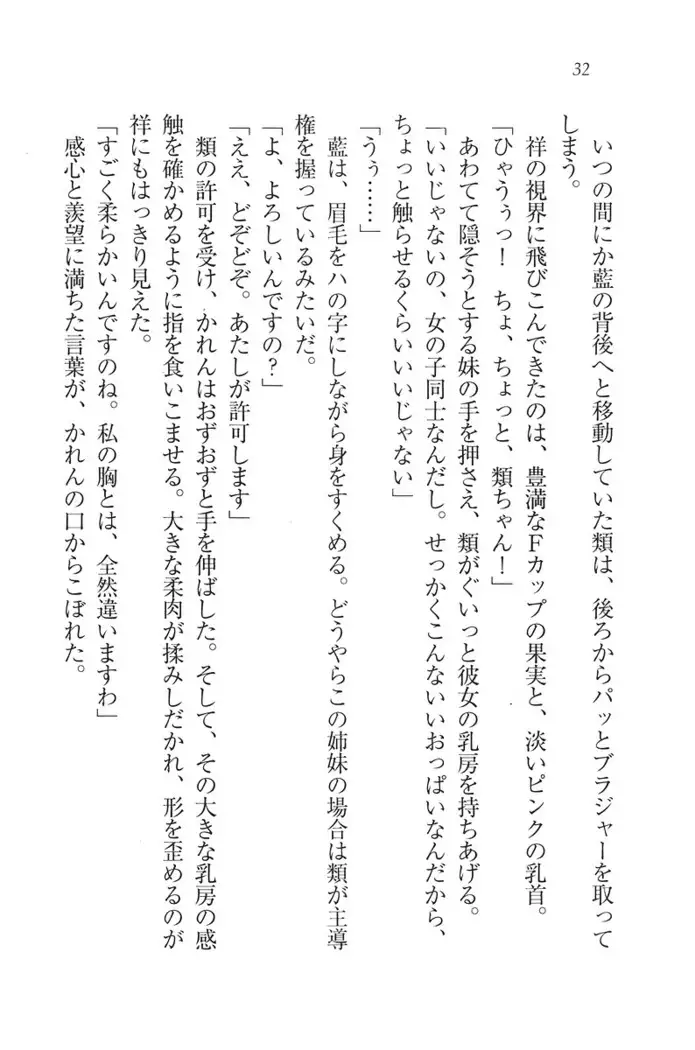 32
いつの間にか藍の背後へと移動していた類は、後ろからパッとブラジャーを取って
しまう。
祥の視界に飛びこんできたのは、豊満なFカップの果実と、淡いピンクの乳首。
「ひゃうぅっ！　ちょ、ちょっと、類ちゃん！」
あわてて隠そうとする妹の手を押さえ、類がぐいっと彼女の乳房を持ちあげる。
「いいじゃないの、女の子同士なんだし。せっかくこんないいおっぱいなんだから、
ちょっと触らせるくらいいいじゃない」
「うぅ……」
藍は、眉毛をハの字にしながら身をすくめる。どうやらこの姉妹の場合は類が主導
権を握っているみたいだ。
「よ、よろしいんですの？」
「ええ、どぞどぞ。あたしが許可します」
類の許可を受け、かれんはおずおずと手を伸ばした。そして、その大きな乳房の感
触を確かめるように指を食いこませる。大きな柔肉が揉みしだかれ、形を歪めるのが
祥にもはっきり見えた。
「すごく柔らかいんですのね。私の胸とは、全然違いますわ」
感心と羨望に満ちた言葉が、かれんの口からこぼれた。